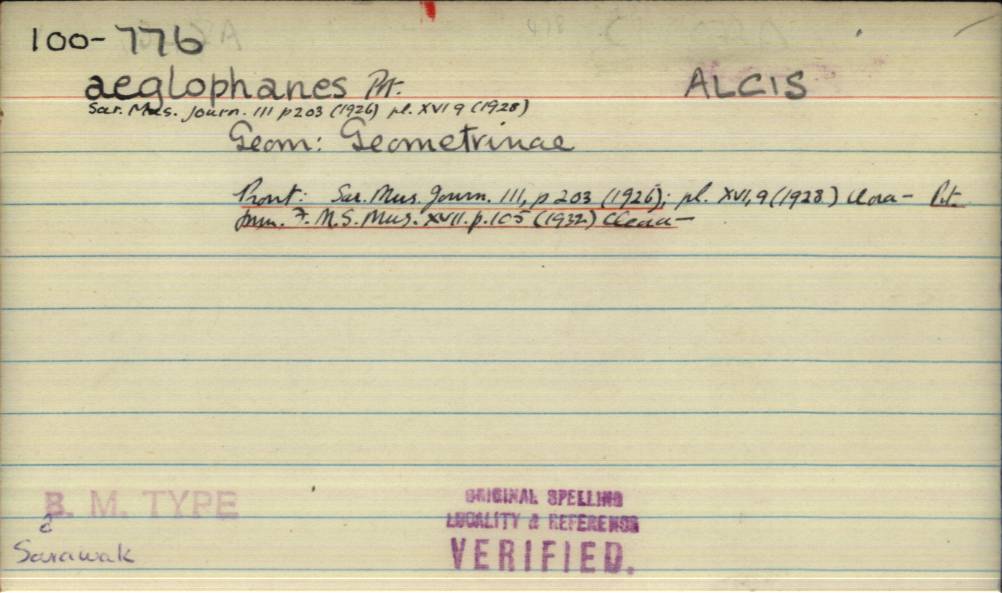 100-776
aeglophanes Prt. ALCIS
Sar. Mus. Journ. III p 203 (1926) pl. XVI 9 (1928)
Geom: Geometrinae
Prout: Sar. Mus. Journ. III, p 203 (1926); pl. XVI, 9 (1928) Cleora - Prt.
Journ. F.M.S. Mus. XVII. p. 105 (1932) Cleora -
B. M. TYPE
Sarawak
ORIGINAL SPELLING
LOCALITY & REFERENCE
VERIFIED.